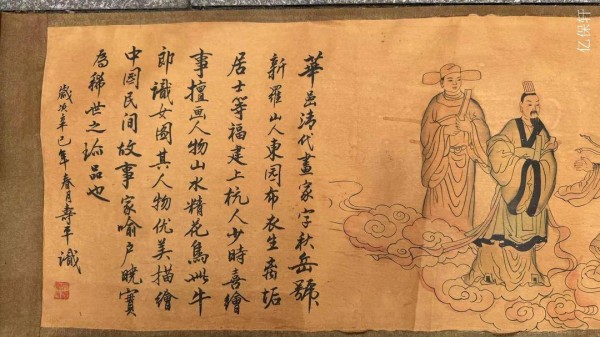 華喦清代畫家字秋岳號
新羅山人東园布衣生离垢
居士等福建上杭人少時喜繪
事擅画人物山水精花鳥此牛
郎識女图其人物优美描繪
中国民间故事家喻户曉實
為稀世之珍品也
歲次辛巳年春月壽平識
亿保轩